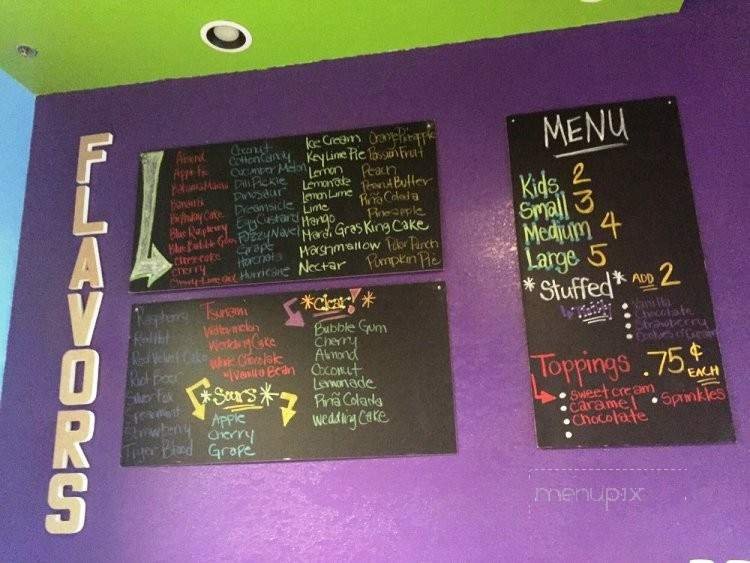 FLAVORS
Almond
Apple Pie
Bahama Mama
Banana
Birthday Cake
Blue Raspberry
Blue Bubble Gum
Cheesecake
Cherry
Cherry Limeade
Coconut
Cotton Candy
Cucumber Melon
Dill Pickle
Dinosaur
Dreamsicle
Egg Custard
Fuzzy Navel
Grape
Horchata
Hurricane
Ice Cream
Key Lime Pie
Lemon
Lemonade
Lemon Lime
Lime
Mango
Mardi Gras King Cake
Marshmallow
Nectar
Orange Pineapple
Passion Fruit
Peach
Peanut Butter
Piña Colada
Pineapple
Polar Punch
Pumpkin Pie
Raspberry
Red Hot
Red Velvet Cake
Root Beer
Silver Fox
Spearmint
Strawberry
Tiger Blood
Tsunami
Watermelon
Wedding Cake
White Chocolate
w/ Vanilla Bean
*Sours*
Apple
Cherry
Grape
*Clear!*
Bubble Gum
Cherry
Almond
Coconut
Lemonade
Piña Colada
Wedding Cake
MENU
Kids 2
Small 3
Medium 4
Large 5
*Stuffed* ADD 2
Vanilla
Chocolate
Strawberry
Cookies & Cream
Toppings .75¢ EACH
Sweet Cream
Caramel
Chocolate
Sprinkles
menupix